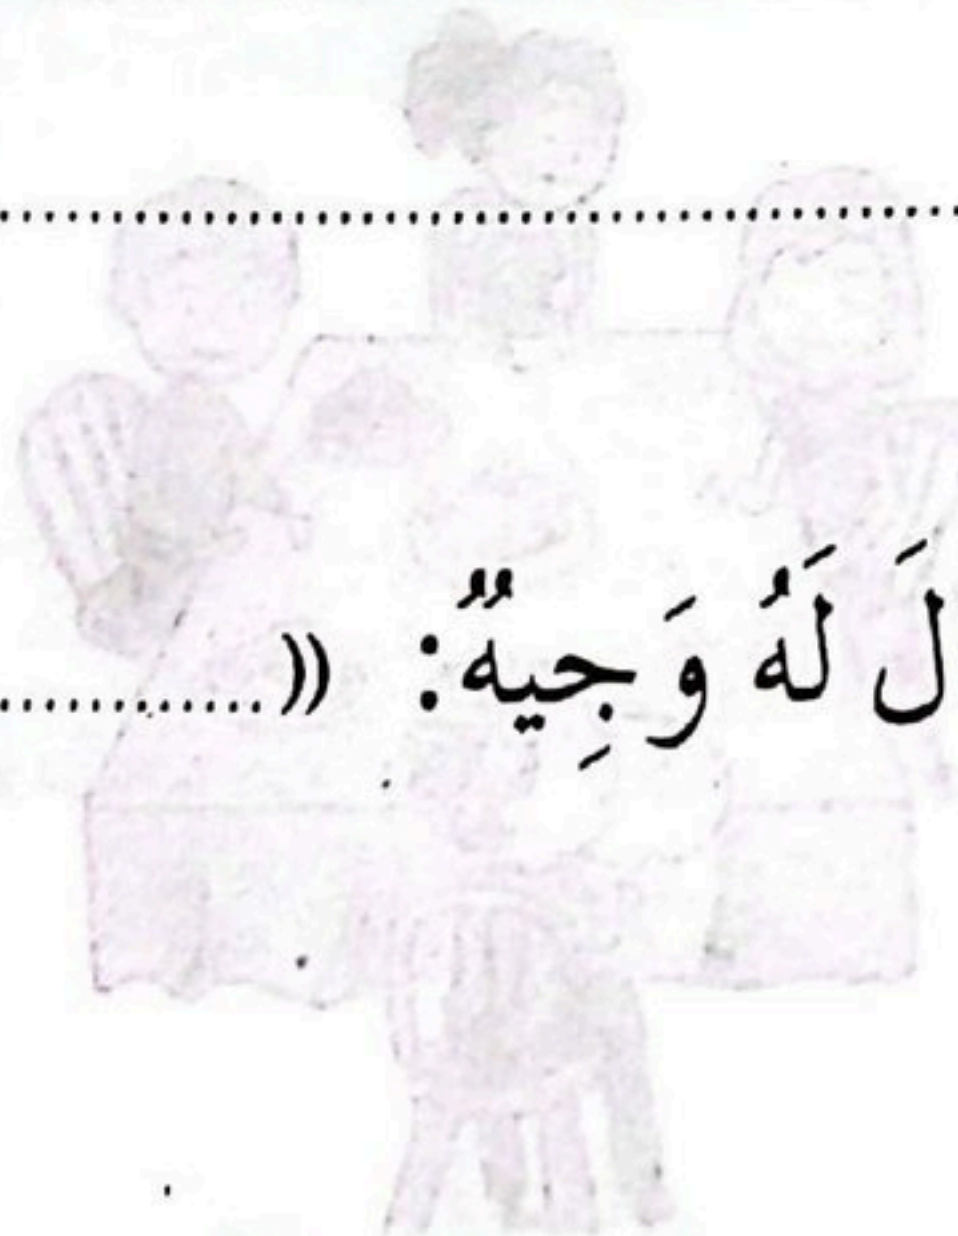 لَ لَهُ وَجِيهٌ: ((..............